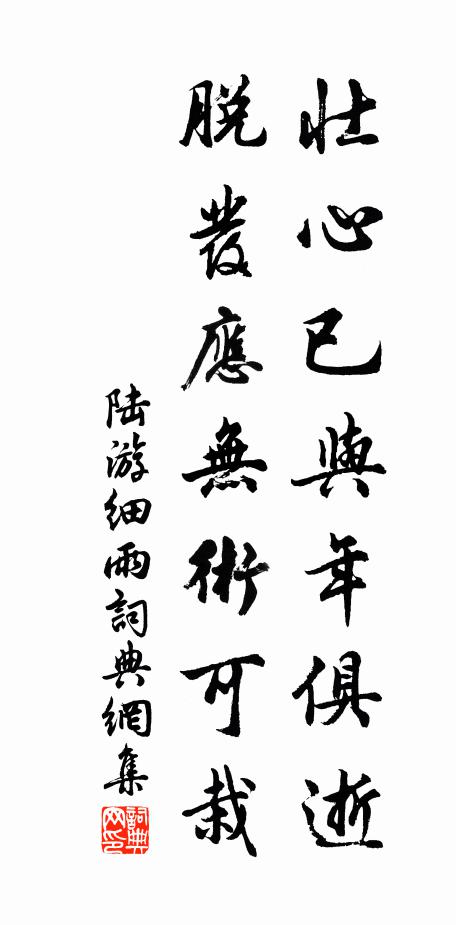 壯心已與年俱逝
脫發應無術可栽
陆游细雨詞典網集
詞典网印